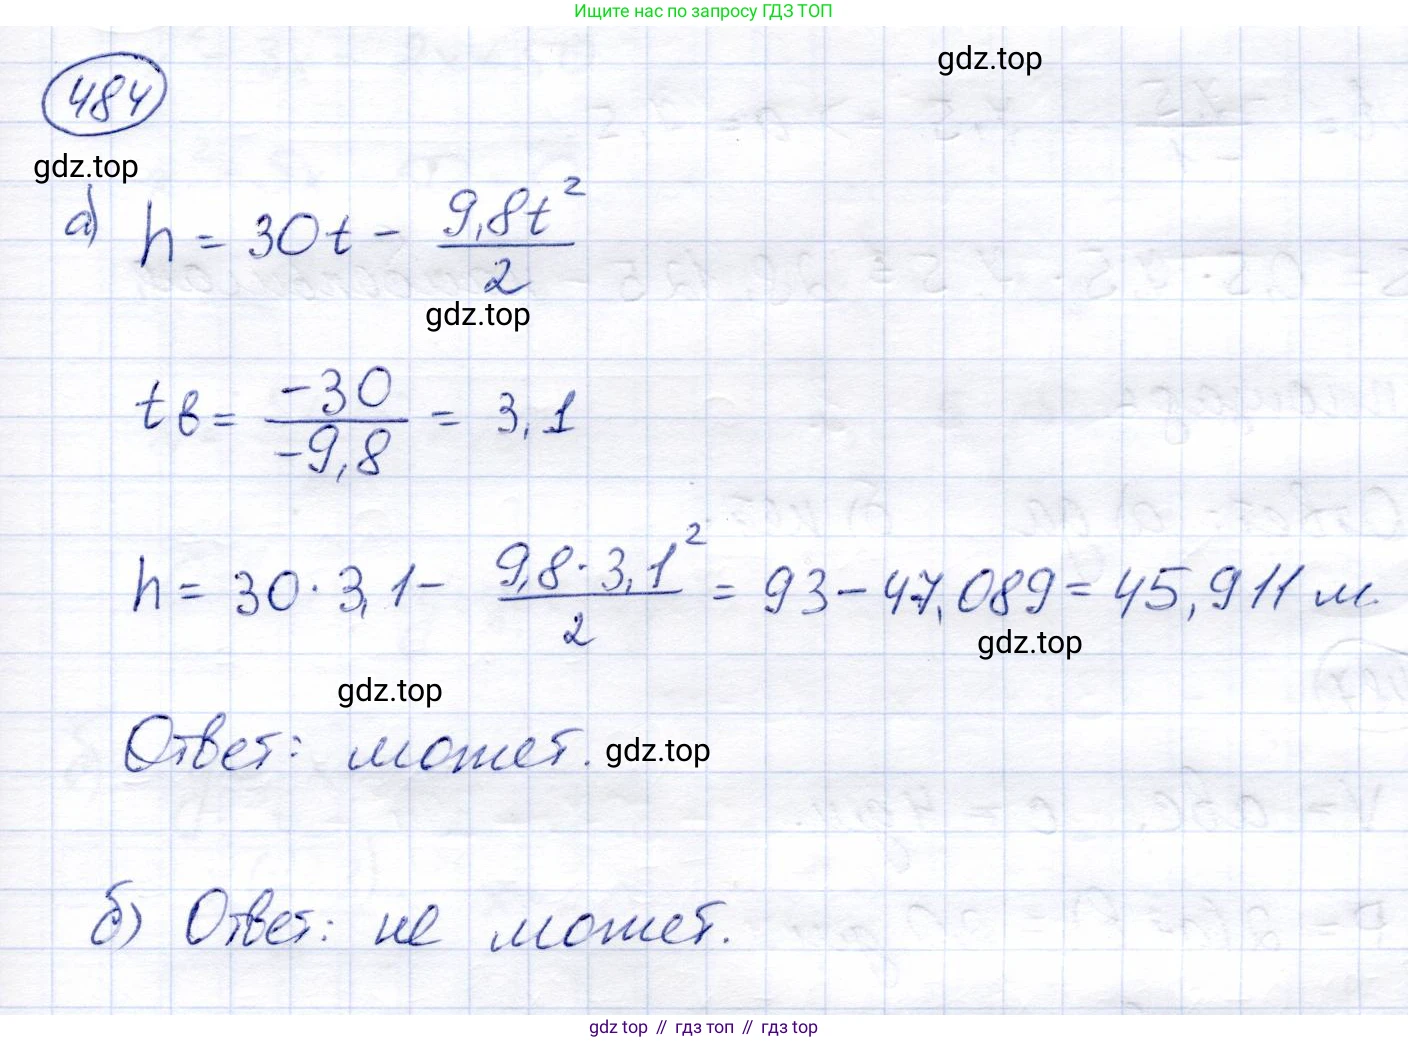 Ищите нас по запросу ГДЗ ТОП
gdz.top
484
gdz.top
а) h = 30t - 9,8t² / 2
gdz.top
tв = -30 / -9,8 = 3,1
h = 30 · 3,1 - 9,8 · 3,1² / 2 = 93 - 47,089 = 45,911 м.
gdz.top
gdz.top
Ответ: может.
gdz.top
б) Ответ: не может.
gdz top // гдз топ // гдз top